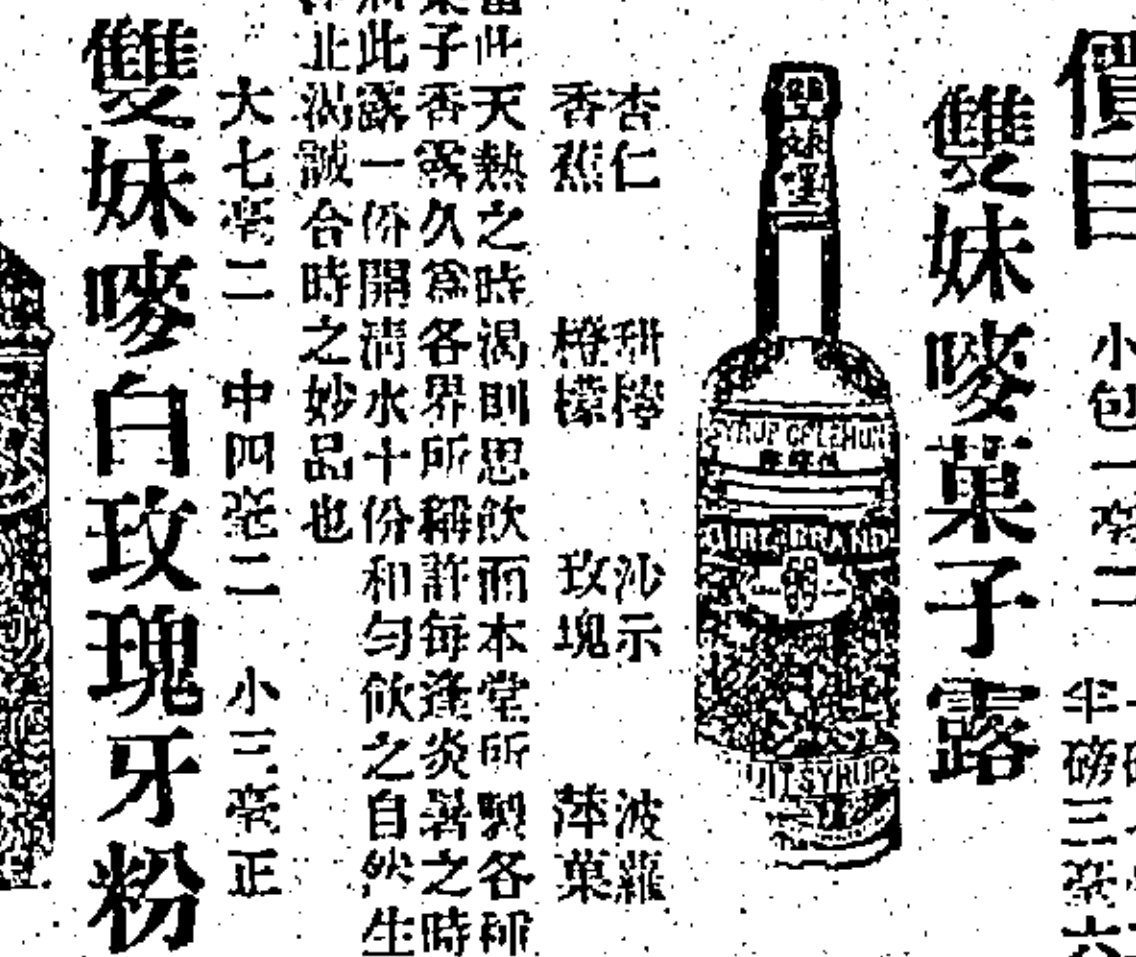 價目
小包一毫二 半磅三毫六
雙妹嘜菓子露
雙妹嘜
SYRUP OF LEMON
GIRL BRAND
FRUIT SYRUP
杏仁 甜檸 沙示 波蘿
香蕉 橙檬 玫瑰 苹菓
當此天熱之時渴則思飲而本堂所製各種
菓子香露久爲各界所稱許每逢炎暑之時
此露一份開清水十份和勻飲之自然生
止渴誠合時之妙品也
大七毫二 中四毫二 小三毫正
雙妹嘜白玫瑰牙粉